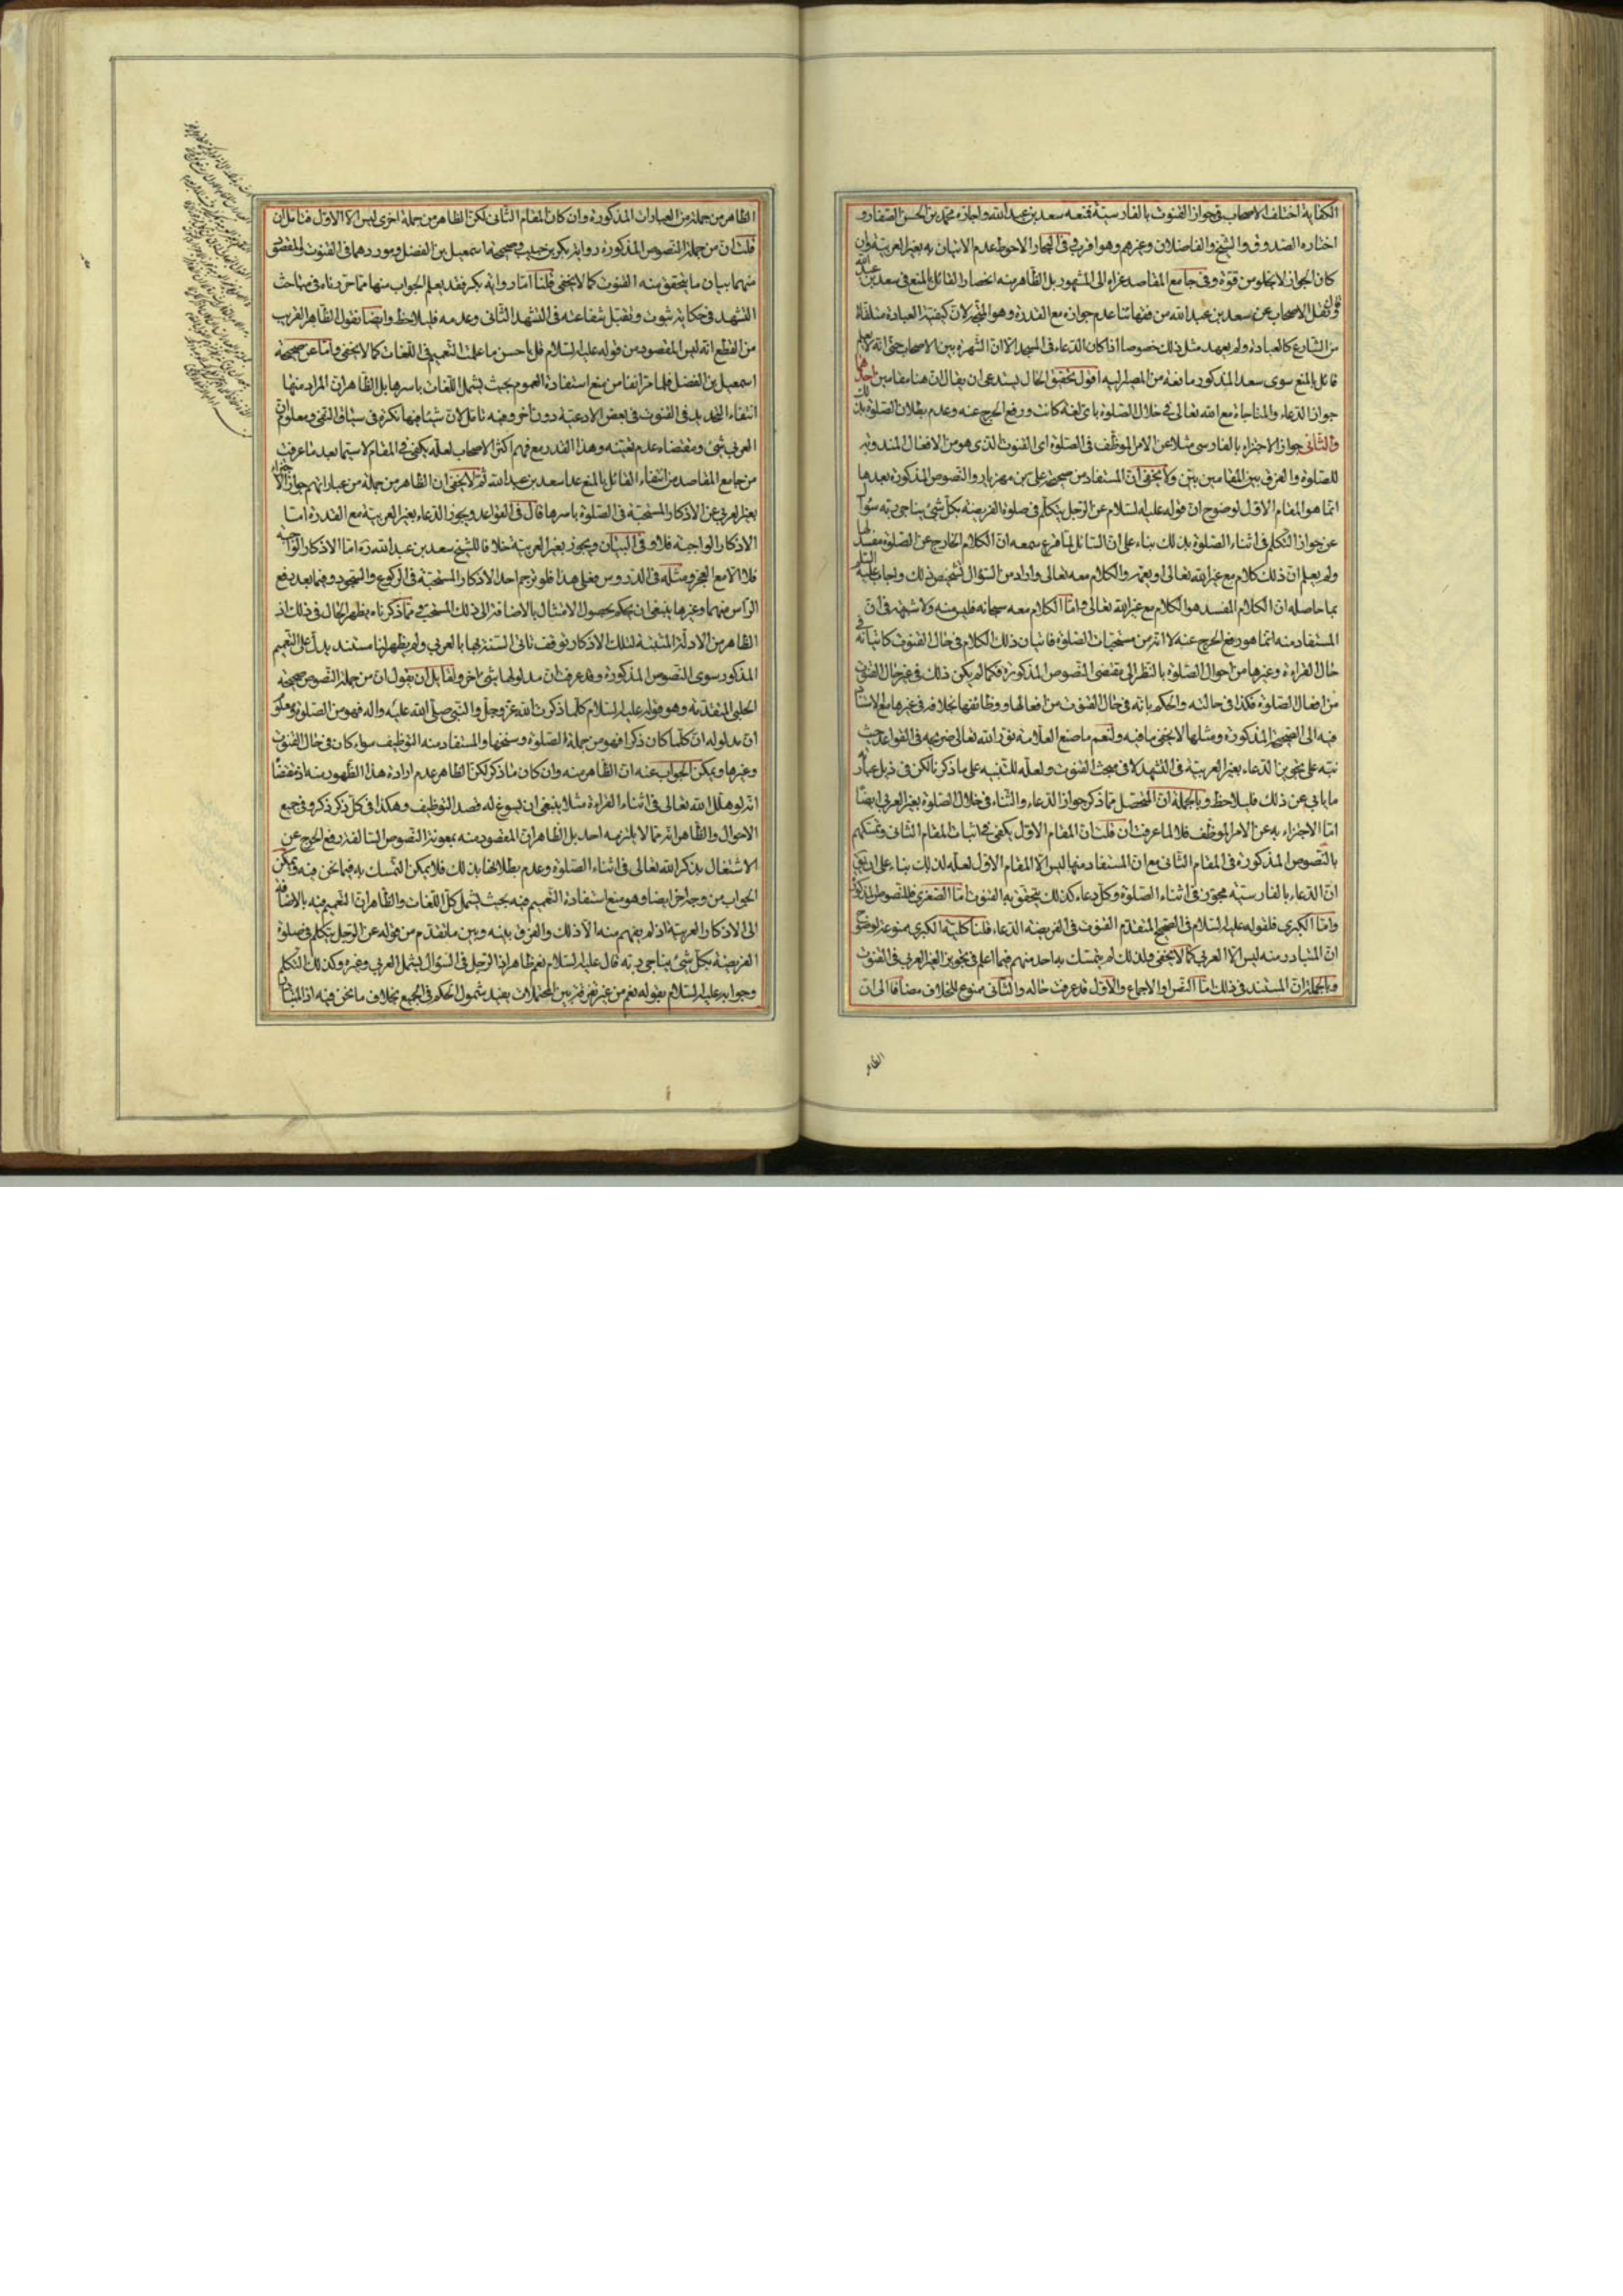 الكفاية اختلف الاصحاب في جواز القنوت بالفارسية فمنعه سعد بن عبد الله واجازه محمد بن الحسن الصفار و
اختاره الصدوق والشيخ والفاضلان وغيرهم وهو اقرب وفي البحار الاحوط عدم الاتيان به بغير العربية وان
كان الجواز لا يخلو من قوة وفي جامع المقاصد عزاه الى المشهور بل الظاهر منه انحصار القائل بالمنع في سعد بن عبد الله
قال ونقل الاصحاب عن سعد بن عبد الله من فقهائنا عدم جوازه مع القدرة وهو المتجه لان كيفية العبادة متلقاة
من الشارع كالعبادة ولم يعهد مثل ذلك خصوصا اذا كان الدعاء في المسجد الا ان الشهرة بين الاصحاب حتى انه لا يعلم
قائل بالمنع سوى سعد المذكور مانعة من المصير اليه اقول تحقيق الحال يستدعى ان يقال ان هنا مقامين احدهما
جواز الدعاء والمناجاة مع الله تعالى في خلال الصلوة باى لغة كانت ورفع الحرج عنه وعدم بطلان الصلوة بذلك
والثانى جواز الاجتزاء بالفارسى مثلا عن الامر الموظف في الصلوة اى القنوت الذى هو من الافعال المندوبة
للصلوة والفرق بين المقامين بين ولا يخفى ان المستفاد من صحيحة على بن مهزيار والنصوص المذكورة بعدها
انما هو المقام الاول لوضوح ان قوله عليه السلام عن الرجل يتكلم في صلوة الفريضة بكل شئ يناجى به سؤال
عن جواز التكلم في اثناء الصلوة بذلك بناء على ان السائل لما قرع سمعه ان الكلام الخارج عن الصلوة مفسد لها
ولم يعلم ان ذلك كلام مع غير الله تعالى او يعمه والكلام معه تعالى واراد من السؤال تشخيص ذلك واجاب عليه السلام
بما حاصله ان الكلام المفسد هو الكلام مع غير الله تعالى واما الكلام معه سبحانه فليس منه ولا شبهة في ان
المستفاد منه انما هو رفع الحرج عنه لا انه من مستحبات الصلوة فاتيان ذلك الكلام في حال القنوت كاتيانه في
حال القراءة وغيرها من احوال الصلوة بالنظر الى مقتضى النصوص المذكورة فكما لم يكن ذلك في غير حال القنوت
من افعال الصلوة فكذا في حالته والحكم بانه في حال القنوت من افعالها ووظائفها بخلافه في غيرها مع الاستناد
فيه الى الصحيحة المذكورة ومثلها لا يخفى ما فيه ولنعم ما صنع العلامة نور الله تعالى ضريحه في القواعد حيث
نبه على تجويز الدعاء بغير العربية في التشهد لا في مبحث القنوت ولعله للتنبيه على ما ذكرنا لكن في ذيل عبارته
ما يابى عن ذلك فليلاحظ وبالجملة ان المتحصل مما ذكر جواز الدعاء والثناء في خلال الصلوة بغير العربى ايضا
اما الاجتزاء به عن الامر الموظف فلا لما عرفت ان قلت ان المقام الاول يكفى في اثبات المقام الثانى وتمسكهم
بالنصوص المذكورة في المقام الثانى مع ان المستفاد منها ليس الا المقام الاول لعله لذلك بناء على ان يق
ان الدعاء بالفارسية مجوز في اثناء الصلوة وكل دعاء كذلك يتحقق به القنوت اما الصغرى فللنصوص المذكورة
واما الكبرى فلقوله عليه السلام في الصحيح المتقدم القنوت في الفريضة الدعاء قلنا كلية الكبرى ممنوعة لوضوح
ان المتبادر منه ليس الا العربى كما لا يخفى ولذلك لم يتمسك به احد منهم فيما اعلم في تجويز الغير العربى في القنوت
وبالجملة ان المستند في ذلك اما النص او الاجماع والاول قد عرفت حاله والثانى ممنوع للخلاف مضافا الى ان
الظاهر
الظاهر من جملة من العبارات المذكورة وان كان المقام الثانى لكن الظاهر من جملة اخرى ليس الا الاول فتامل ان
قلت ان من جملة النصوص المذكورة رواية بكر بن حبيب وصحيحة اسمعيل بن الفضل وموردهما في القنوت والمقصود
منهما بيان ما يتحقق منه القنوت كما لا يخفى قلنا اما رواية بكر فقد يعلم الجواب منها مما حررناه في مباحث
التشهد في حكاية ثبوت وتقبل شفاعته في التشهد الثانى وعدمه فليلاحظ وايضا نقول الظاهر القريب
من القطع انه ليس المقصود من قوله عليه السلام قل باحسن ما علمت التعميم في اللغات كما لا يخفى واما عن صحيحة
اسمعيل بن الفضل فلما مر انفا من منع استفادة العموم بحيث يشمل اللغات باسرها بل الظاهر ان المراد منها
انتفاء التحديد في القنوت في بعض الادعية دون اخر وفيه تامل لان شيئا فيها نكرة في سياق النفى ومعلوم ان
العربى شئ ومقتضاه عدم تعينه وهذا القدر مع فهم اكثر الاصحاب لعله يكفى في المقام لا سيما بعد ما عرفت
من جامع المقاصد من انتفاء القائل بالمنع عدا سعد بن عبد الله ثم لا يخفى ان الظاهر من جملة من عباراتهم جواز الاجتزاء
بغير العربى عن الاذكار المستحبة في الصلوة باسرها قال في القواعد ويجوز الدعاء بغير العربية مع القدرة اما
الاذكار الواجبة فلا وفي البيان ويجوز بغير العربية خلافا للشيخ سعد بن عبد الله ره اما الاذكار الواجبة
فلا الا مع العجز ومثله في الدروس فعلى هذا فلو ترجم احد الاذكار المستحبة في الركوع والسجود وفيما بعد رفع
الراس منهما وغيرها ينبغى ان يحكم بحصول الامتثال بالاضافة الى ذلك المستحب ومما ذكرناه يظهر الحال في ذلك اذ
الظاهر من الادلة المثبتة لتلك الاذكار توقف تاتى السنة بها بالعربى ولم يظهر لنا مستند يدل على التعميم
المذكور سوى النصوص المذكورة وقد عرفت ان مدلولها شئ اخر ولقائل ان يقول ان من جملة النصوص صحيحة
الحلبى المتقدمة وهو قوله عليه السلام كلما ذكرت الله عز وجل والنبى صلى الله عليه واله فهو من الصلوة ومعلوم
ان مدلوله ان كلما كان ذكرا فهو من جملة الصلوة وسنخها والمستفاد منه التوظيف سواء كان في حال القنوت
وغيرها ويمكن الجواب عنه ان الظاهر منه وان كان ما ذكر لكن الظاهر عدم ارادة هذا الظهور منه اذ مقتضاه
انه لو هلل الله تعالى في اثناء القراءة مثلا ينبغى ان يسوغ له قصد التوظيف وهكذا في كل ذكر ذكر وفي جميع
الاحوال والظاهر انه مما لا يلتزمه احد بل الظاهر ان المقصود منه بمعونة النصوص السالفة رفع الحرج عن
الاشتغال بذكر الله تعالى في اثناء الصلوة وعدم بطلانها بذلك فلا يمكن التمسك به فيما نحن فيه ويمكن
الجواب من وجه اخر ايضا وهو منع استفادة التعميم فيه بحيث يشمل كل اللغات والظاهر ان التعميم فيه بالاضافة
الى الاذكار العربية اذ لم يفهم منه الا ذلك والفرق بينه وبين ما تقدم من قوله عن الرجل يتكلم في صلوة
الفريضة بكل شئ يناجى ربه قال عليه السلام نعم ظاهر اذ الرجل في السؤال يشمل العربى وغيره وكذلك التكلم
وجوابه عليه السلام بقوله نعم من غير تعرض بين المحتملات يفيد شمول الحكم في الجميع بخلاف ما نحن فيه اذ المتبادر